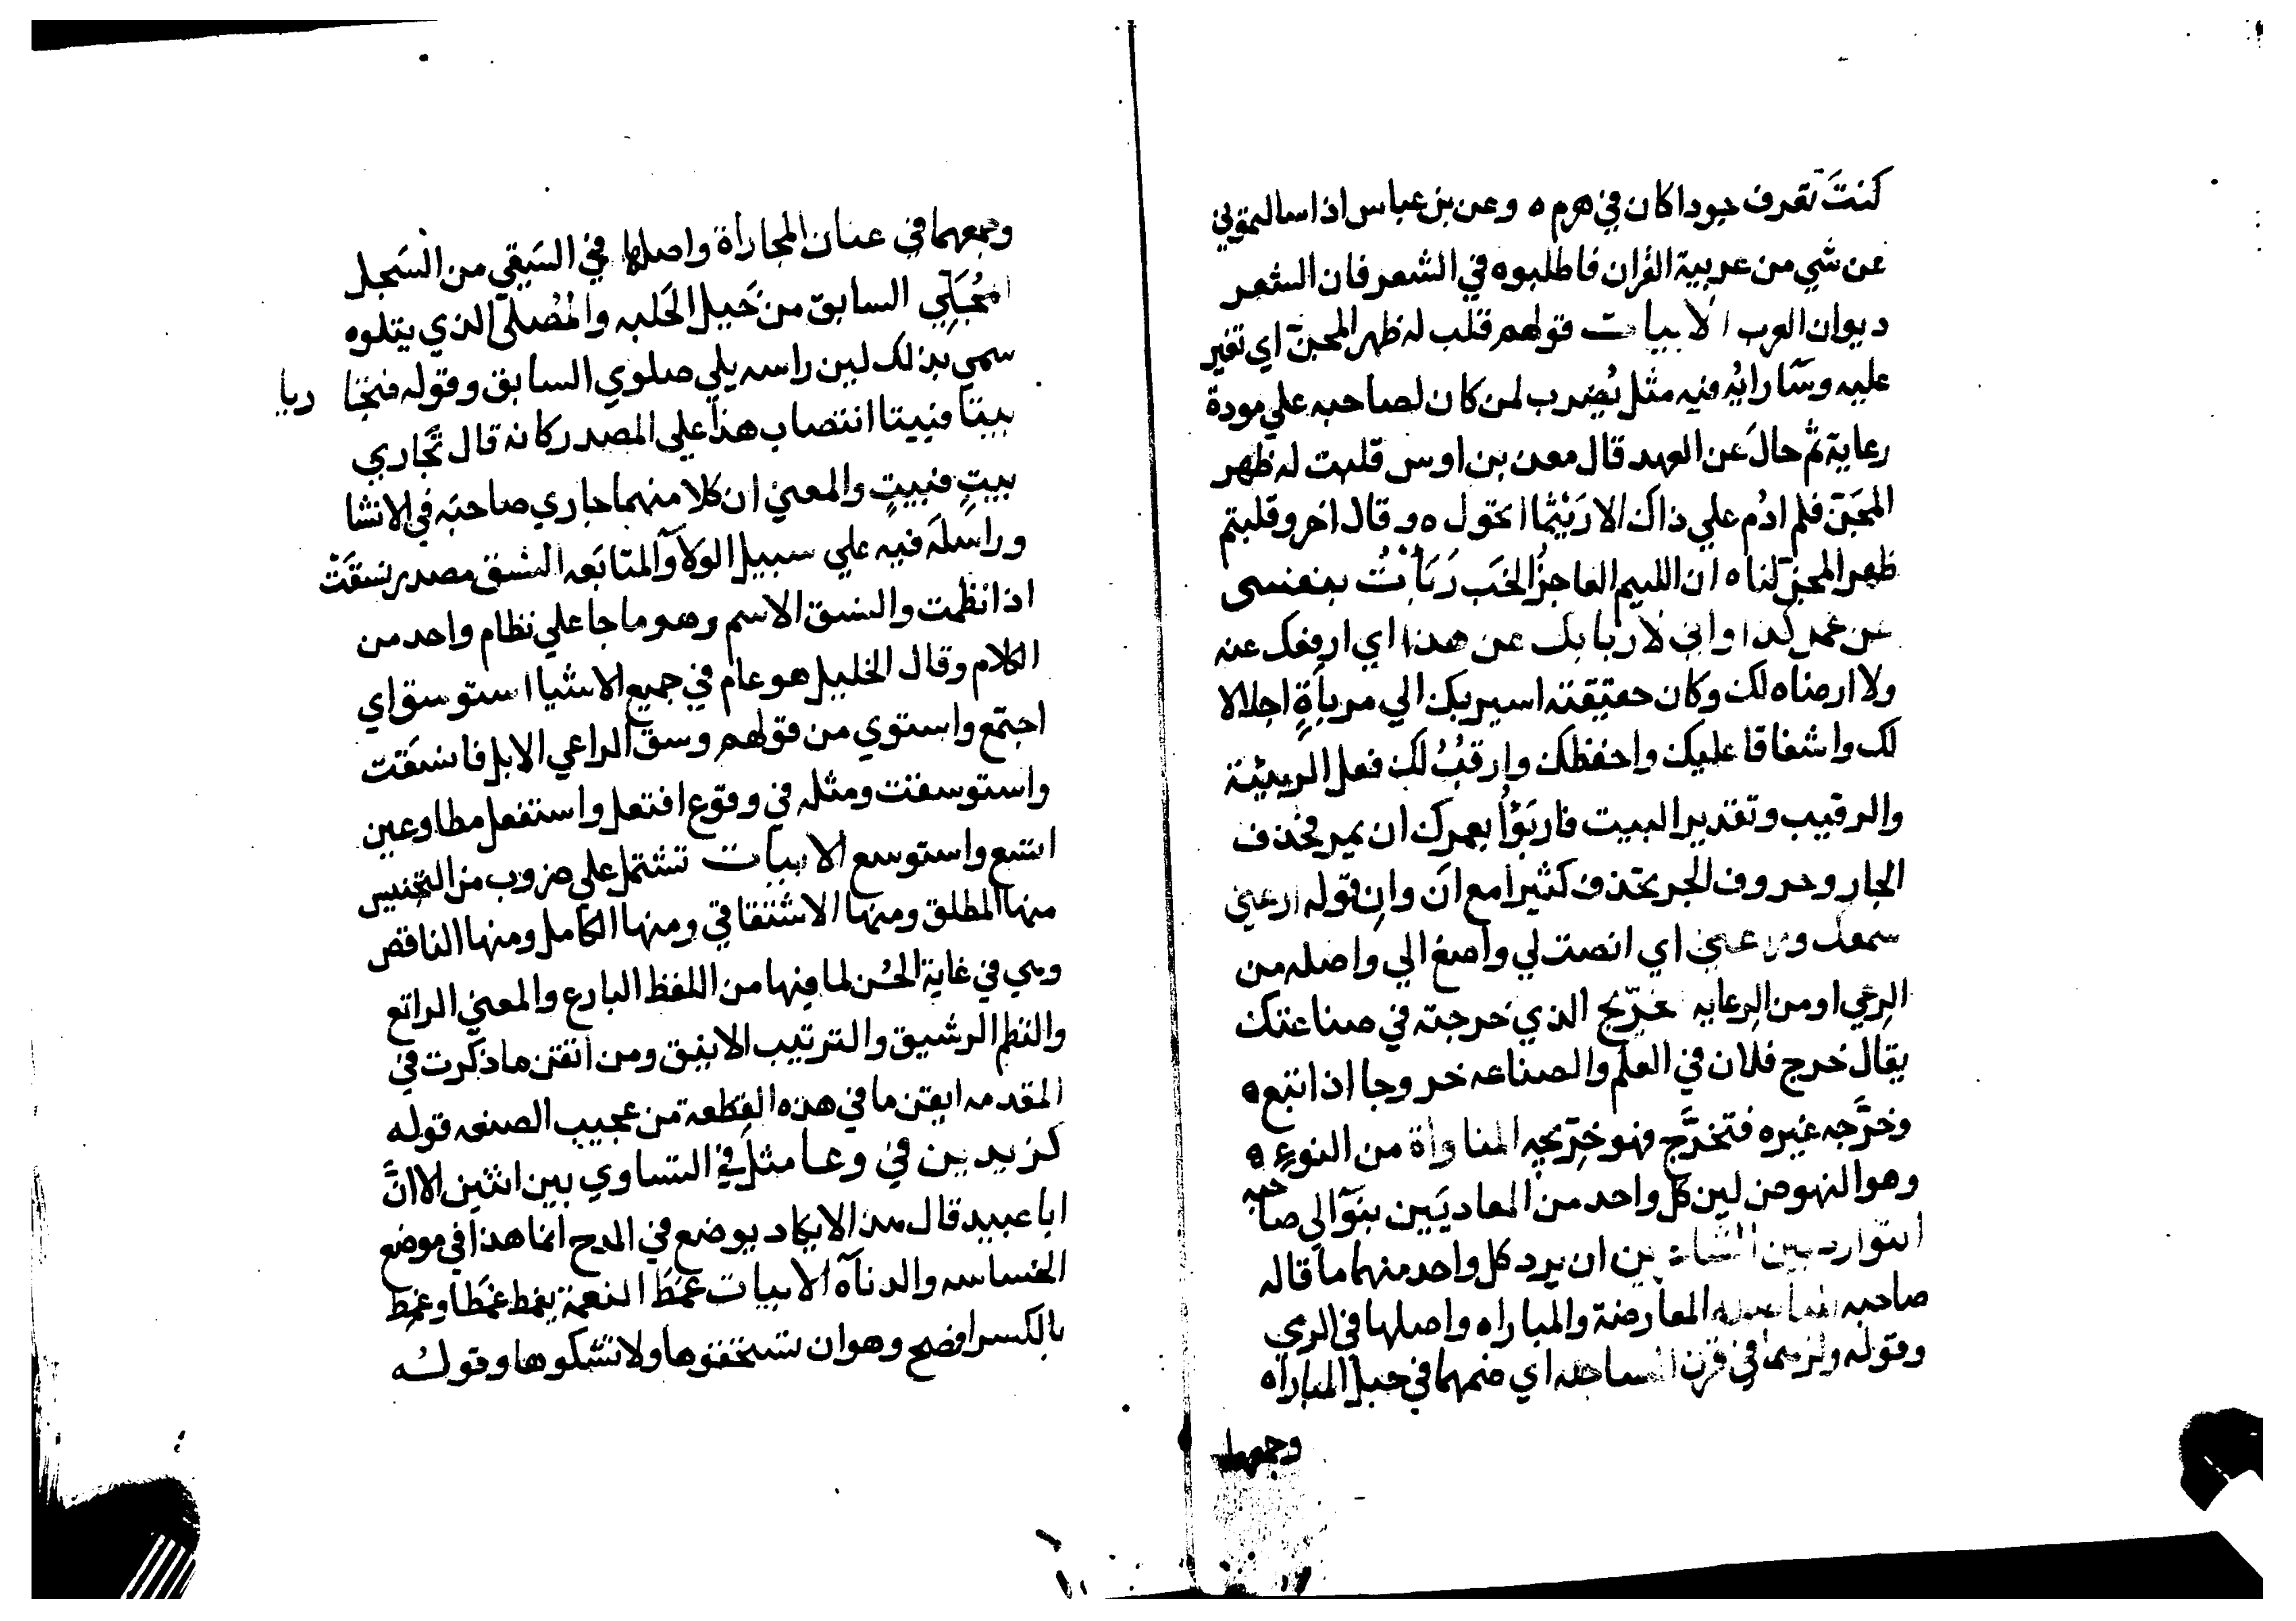 كنتَ تعرف جودا كان في هرم ه وعن بن عباس اذا سالتموني
عن شي من عربية القران فاطلبوه في الشعر فان الشعر
ديوان العرب الابيات قولهم قلب له ظهر المجنّ اي تغير
عليه وسَّاء رايُه فيه مثل يُضرب لمن كان لصاحبه علي مودة
رعاية ثم حالَ عن العهد قال معن بن اوس قلبت له ظهر
المجَنّ فلم ادُم علي ذاك الا رَيْثما اتحول ه وقال اخر وقلبتم
ظهر المجنّ لنا ه ان الليم العاجزُ الخَب رَبَأتُ بنفسى
عن عمل كذا واني لاربا بك عن هذا اي ارفعك عنه
ولا ارضاه لك وكان حقيقته اسير بك الي مرباَةٍ اجلالا
لك واشفاقا عليك واحفظك وارقبُ لك فعل الربيئة
والرقيب وتقدير البيت فاربَؤا بعمرك ان يمر فحذف
الجار وحروف الجر تحذف كثيرا مع انَ وانِ قوله ارعني
سمعك وراعني اي انصت لي واصغ الي واصله من
الرعي او من الرعايه خرّيج الذي خرجته في صناعتك
يقال خرج فلان في العلم والصناعه خروجا اذا انبع ه
وخرَّجه غيره فتخرَّج فهو خِرّيجه المناواة من النوءِ ه
وهو النهوض لين كل واحد من المعاديَين ينوّ الي صاحبه
التوارد بين الشاعرين ان يرد كل واحد منهما ما قاله
صاحبه المعارضة والمباراه واصلها في الري
وقوله ولزهما في قرن المساجله اي ضمهما في حبل المباراه
وجمعهما
وجمعهما في عنان المجاراة واصلها في السَبقي من السَجل
المُجَلِّي السابق من خَيل الحَلبه والمُصلى الذي يتلوه
سمي بذلك لين راسه يلي صلوي السابق وقوله فتجا ريا
بيتا فبيتا انتصاب هذا علي المصدر كانه قال تَجاري
بيتٍ فبيتٍ والمعني ان كلا منهما جاري صاحبَه في الانشا
وراسلَه فيه علي سبيل الوَلآ والمتابَعه النسَق مصدر نسَقَتْ
اذا نظمت والنسق الاسم وهو ما جا علي نظام واحد من
الكلام وقال الخليل هو عام في جميع الاشيا استوسق اي
اجتمع واستوي من قولهم وسق الراعي الابل فاتسَقت
واستوسقت ومثله في وقوع افتعل واستفعل مطاوعين
اتسع واستوسع الابيات تشتمل علي ضروب من التجنيس
منها المطلق ومنها الاشتقاقي ومنها الكامل ومنها الناقص
وهي في غاية الحُسن لما فيها من اللفظ البارع والمعني الرائع
والنظم الرشيق والترتيب الانيق ومن اتقن ما ذكرت في
المقدمه ايقن ما في هذه القِطعة من عجيب الصنعه قوله
كزيدين في وعا مثل في التساوي بين اثنين الا انَّ
ابا عبيد قال هذا لا يكاد يوضع في المدح انما هذا في موضع
الخساسه والدنآه الابيات غمَطَ النعمة يغمط غمَطا وغمِط
بالكسر افصح وهو ان تستخفوها ولا تشكوها وقولُه